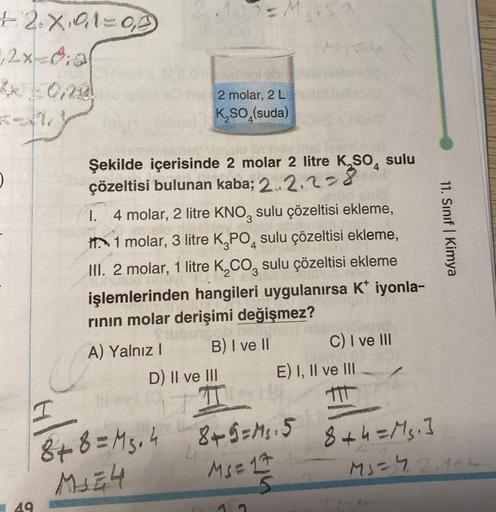 + 2.X.0,1=0,3
2.100=M
2 molar, 2 L
K₂SO₄(suda)
Şekilde içerisinde 2 molar 2 litre K₂SO₄ sulu
çözeltisi bulunan kaba; 2.2.2=8
I. 4 molar, 2 litre KNO₃ sulu çözeltisi ekleme,
1 molar, 3 litre K₃PO₄ sulu çözeltisi ekleme,
III. 2 molar, 1 litre K₂CO₃ sulu çözeltisi ekleme
işlemlerinden hangileri uygulanırsa K⁺ iyonla-
rının molar derişimi değişmez?
A) Yalnız I B) I ve II C) I ve III
D) II ve III E) I, II ve III
11. Sınıf | Kimya
I
8+8=Ms.4
Ms=4
II
8+9=Ms.5
Ms=17
5
III
8+4=Ms.3
Ms=4
49